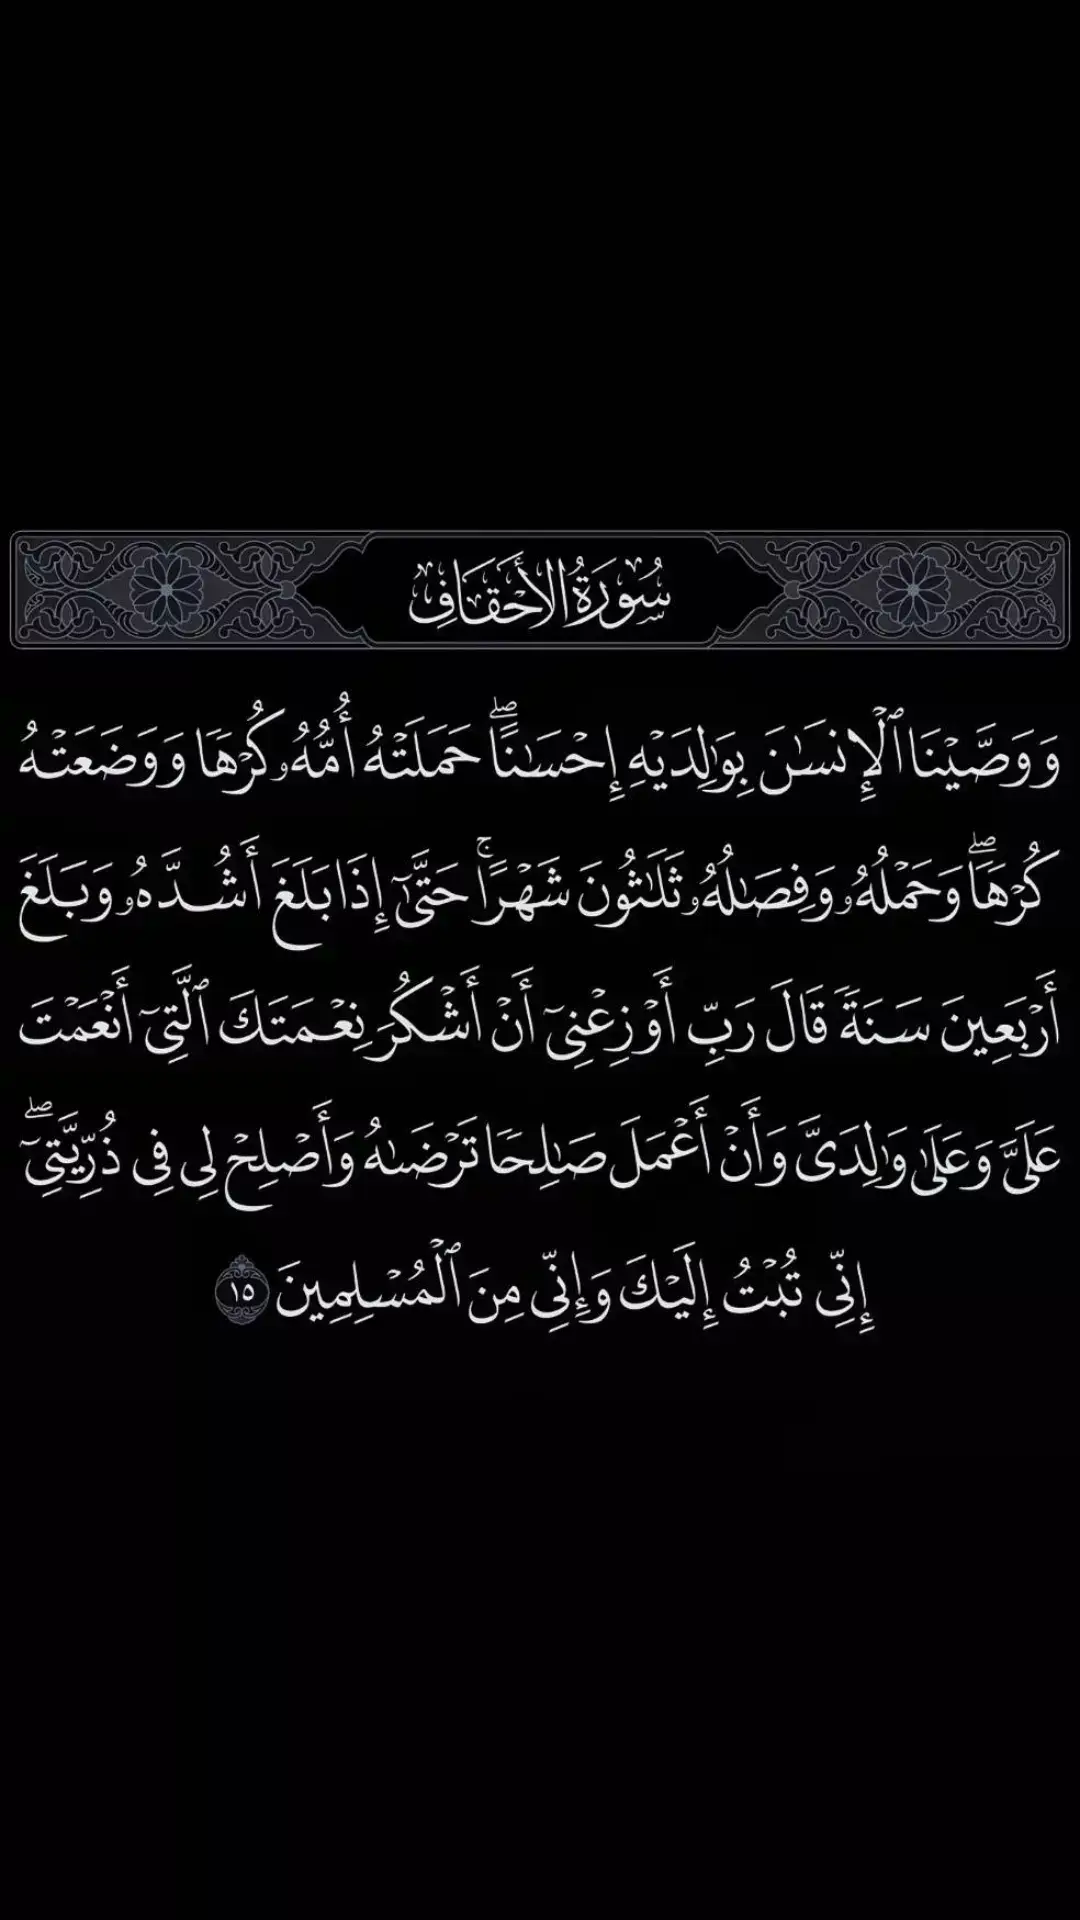 سُورَةُ الأَحْقَافِ
وَوَصَّيْنَا ٱلْإِنسَٰنَ بِوَٰلِدَيْهِ إِحْسَٰنًاۖ حَمَلَتْهُ أُمُّهُۥ كُرْهًا وَوَضَعَتْهُ
كُرْهًاۖ وَحَمْلُهُۥ وَفِصَٰلُهُۥ ثَلَٰثُونَ شَهْرًاۚ حَتَّىٰٓ إِذَا بَلَغَ أَشُدَّهُۥ وَبَلَغَ
أَرْبَعِينَ سَنَةً قَالَ رَبِّ أَوْزِعْنِىٓ أَنْ أَشْكُرَ نِعْمَتَكَ ٱلَّتِىٓ أَنْعَمْتَ
عَلَىَّ وَعَلَىٰ وَٰلِدَىَّ وَأَنْ أَعْمَلَ صَٰلِحًا تَرْضَىٰهُ وَأَصْلِحْ لِى فِى ذُرِّيَّتِىٓۖ
إِنِّى تُبْتُ إِلَيْكَ وَإِنِّى مِنَ ٱلْمُسْلِمِينَ ١٥